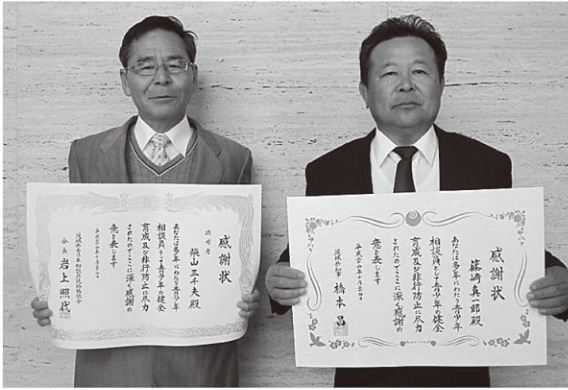 感謝状
三千夫殿
あなたは多年にわたり青少年
相談員として青少年の健全
育成及び非行防止に尽力
されたのでここに深く感謝の
意を表します
会長 岩上
感謝状
篠﨑真一郎殿
あなたは多年にわたり青少年
相談員として青少年の健全
育成及び非行防止に尽力
されたのでここに深く感謝の
意を表します
茨城県知事 橋本昌